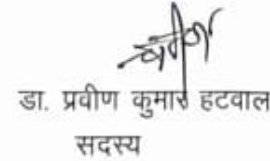 डा. प्रवीण कुमार हटवाल
सदस्य